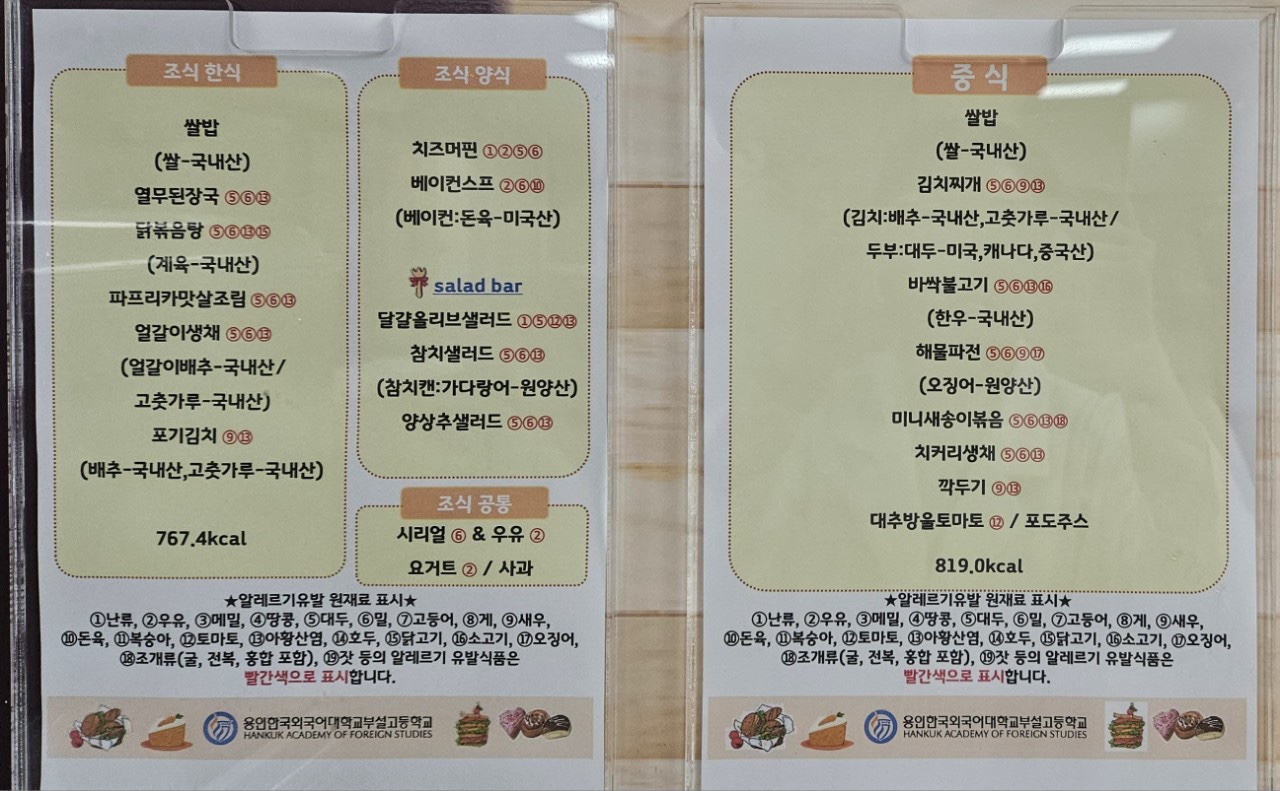 조식 한식
쌀밥
(쌀-국내산)
열무된장국 ⑤⑥⑬
닭볶음탕 ⑤⑥⑬⑮
(계육-국내산)
파프리카맛살조림 ⑤⑥⑬
얼갈이생채 ⑤⑥⑬
(얼갈이배추-국내산/
고춧가루-국내산)
포기김치 ⑨⑬
(배추-국내산,고춧가루-국내산)
767.4kcal
조식 양식
치즈머핀 ①②⑤⑥
베이컨스프 ②⑥⑩
(베이컨:돈육-미국산)
salad bar
달걀올리브샐러드 ①⑤⑫⑬
참치샐러드 ⑤⑥⑬
(참치캔:가다랑어-원양산)
양상추샐러드 ⑤⑥⑬
조식 공통
시리얼 ⑥ & 우유 ②
요거트 ② / 사과
★알레르기유발 원재료 표시★
①난류, ②우유, ③메밀, ④땅콩, ⑤대두, ⑥밀, ⑦고등어, ⑧게, ⑨새우,
⑩돈육, ⑪복숭아, ⑫토마토, ⑬아황산염, ⑭호두, ⑮닭고기, ⑯소고기, ⑰오징어,
⑱조개류(굴, 전복, 홍합 포함), ⑲잣 등의 알레르기 유발식품은
빨간색으로 표시합니다.
용인한국외국어대학교부설고등학교
HANKUK ACADEMY OF FOREIGN STUDIES
중 식
쌀밥
(쌀-국내산)
김치찌개 ⑤⑥⑨⑬
(김치:배추-국내산,고춧가루-국내산/
두부:대두-미국,캐나다,중국산)
바싹불고기 ⑤⑥⑬⑯
(한우-국내산)
해물파전 ⑤⑥⑨⑰
(오징어-원양산)
미니새송이볶음 ⑤⑥⑬⑱
치커리생채 ⑤⑥⑬
깍두기 ⑨⑬
대추방울토마토 ⑫ / 포도주스
819.0kcal
★알레르기유발 원재료 표시★
①난류, ②우유, ③메밀, ④땅콩, ⑤대두, ⑥밀, ⑦고등어, ⑧게, ⑨새우,
⑩돈육, ⑪복숭아, ⑫토마토, ⑬아황산염, ⑭호두, ⑮닭고기, ⑯소고기, ⑰오징어,
⑱조개류(굴, 전복, 홍합 포함), ⑲잣 등의 알레르기 유발식품은
빨간색으로 표시합니다.
용인한국외국어대학교부설고등학교
HANKUK ACADEMY OF FOREIGN STUDIES